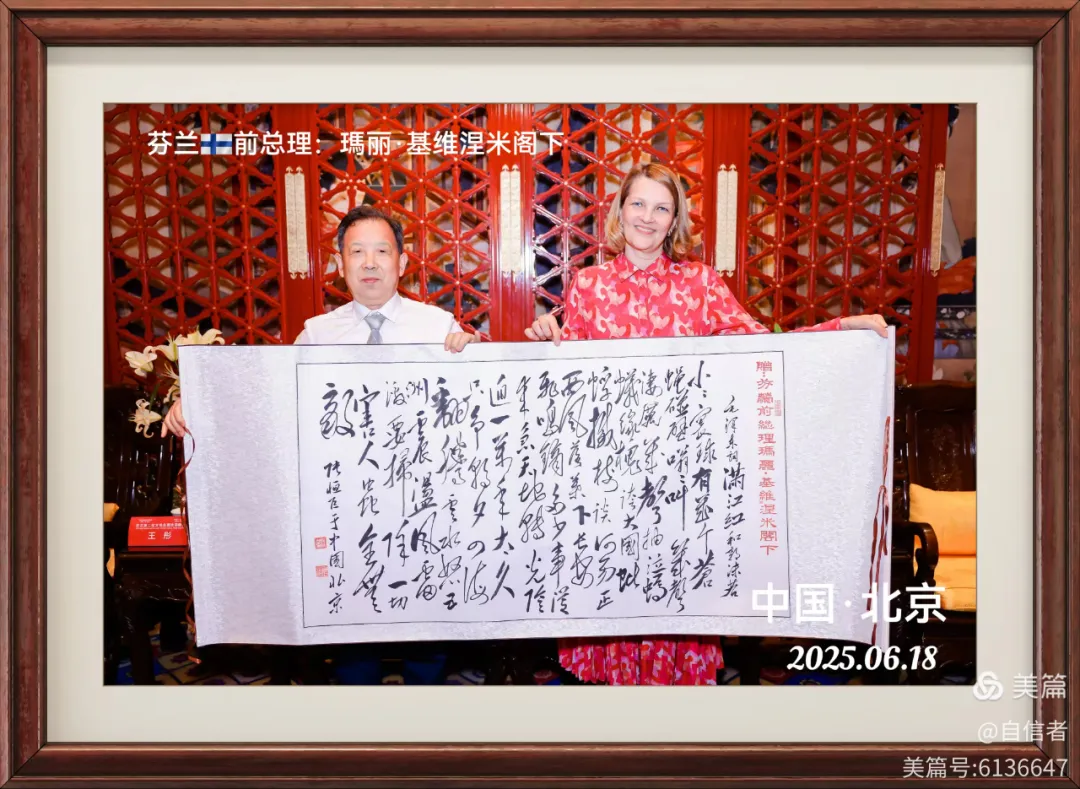 芬兰🇫🇮前总理：瑪丽·基维涅米阁下
贈:芬蘭前總理瑪麗·基維涅米閣下
毛澤東詞滿江紅和郭沫若
小小寰球有幾个蒼
蠅碰壁嗡嗡叫幾聲
淒厲幾聲抽泣螞
蟻緣槐誇大國蚍
蜉撼樹談何易正
西風落葉下長安
飛鳴鏑多少事從
来急天地轉光陰
迫一萬年太久
只争朝夕四海
翻騰雲水怒五
洲震盪風雷
激要掃除一切
害人蟲全無
敵
于中國北京
王彤
中国·北京
2025.06.18
美篇
@自信者
美篇号:6136647